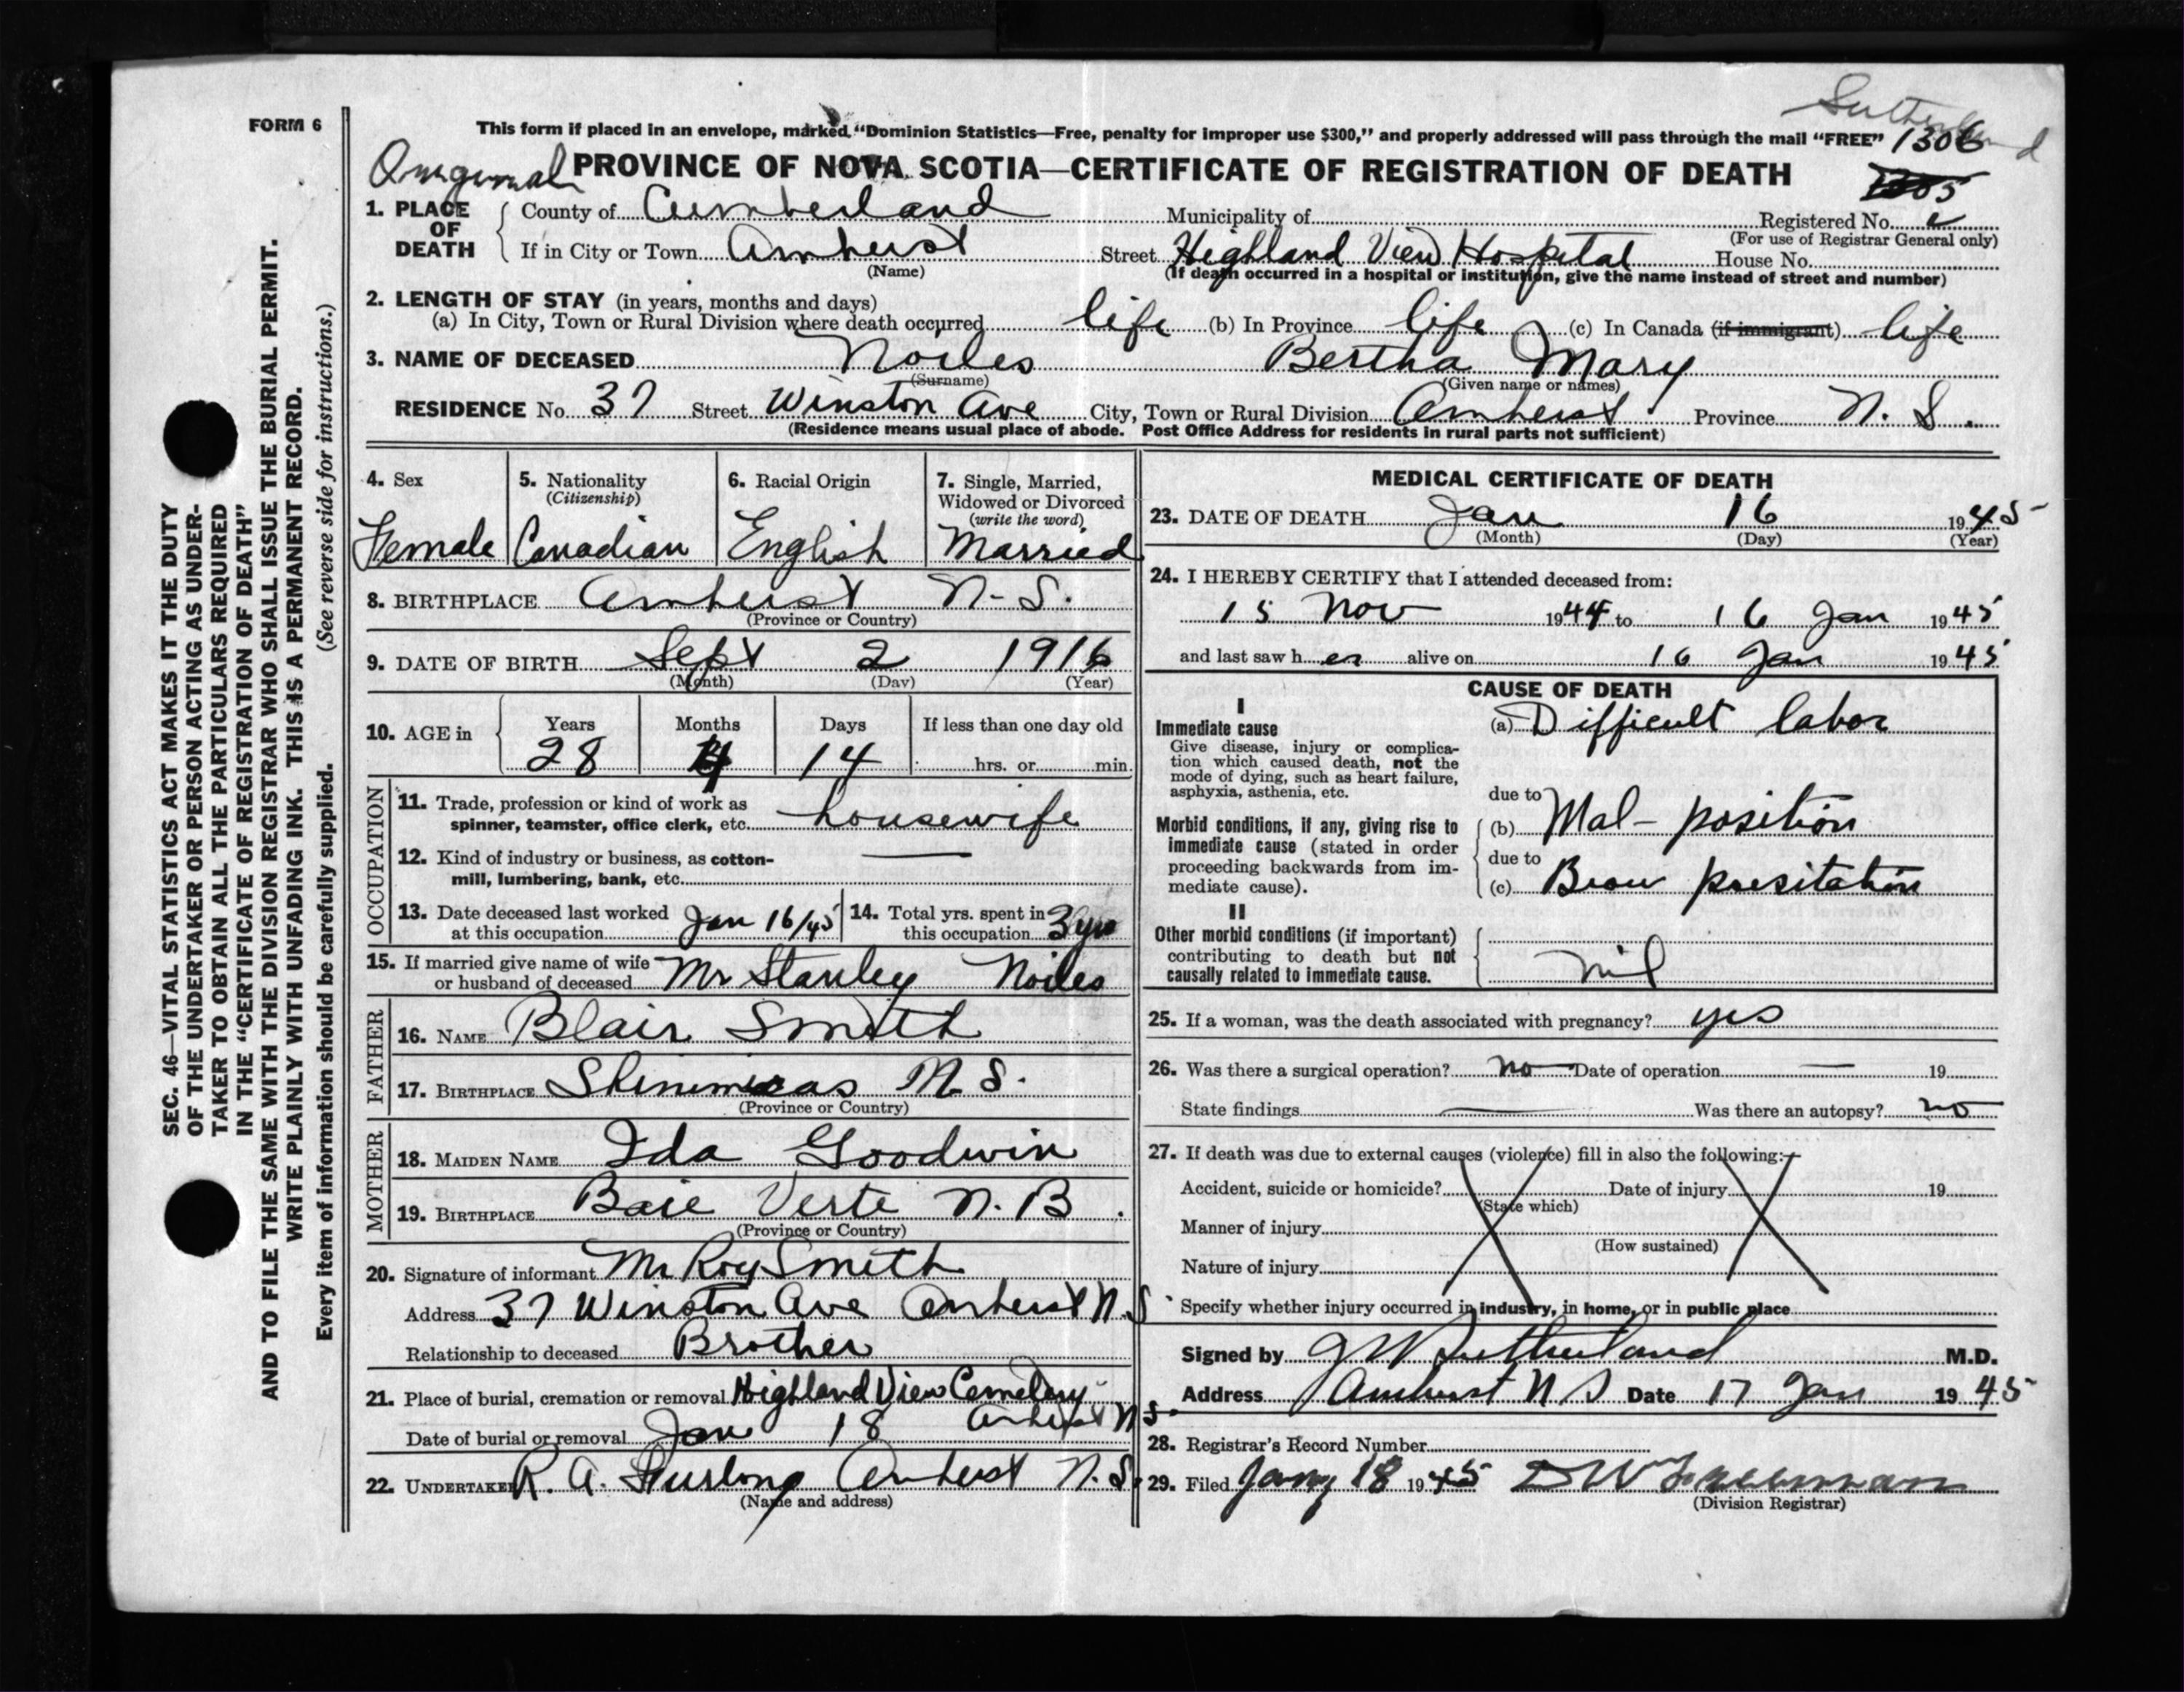 Sutherland
FORM 6
This form if placed in an envelope, marked, "Dominion Statistics—Free, penalty for improper use $300," and properly addressed will pass through the mail "FREE" 1306
PROVINCE OF NOVA SCOTIA—CERTIFICATE OF REGISTRATION OF DEATH
1305
1. PLACE OF DEATH County of Cumberland Municipality of Registered No.
(For use of Registrar General only)
If in City or Town Amherst Street Highland View Hospital House No.
(Name) (If death occurred in a hospital or institution, give the name instead of street and number)
2. LENGTH OF STAY (in years, months and days)
(a) In City, Town or Rural Division where death occurred life (b) In Province life (c) In Canada (if immigrant) life
3. NAME OF DECEASED Noiles Bertha Mary
(Surname) (Given name or names)
RESIDENCE No. 37 Street Winston Ave City, Town or Rural Division Amherst Province N. S.
(Residence means usual place of abode. Post Office Address for residents in rural parts not sufficient)
4. Sex Female
5. Nationality (Citizenship) Canadian
6. Racial Origin English
7. Single, Married, Widowed or Divorced (write the word) Married
8. BIRTHPLACE Amherst N-S.
(Province or Country)
9. DATE OF BIRTH Sept 2 1916
(Month) (Day) (Year)
10. AGE in Years Months Days If less than one day old
28 4 14 hrs. or min.
OCCUPATION
11. Trade, profession or kind of work as
spinner, teamster, office clerk, etc. housewife
12. Kind of industry or business, as cotton-
mill, lumbering, bank, etc. —
13. Date deceased last worked
at this occupation Jan 16/45
14. Total yrs. spent in
this occupation 3 yrs
15. If married give name of wife
or husband of deceased Mr Stanley Noiles
FATHER
16. NAME Blair Smith
17. BIRTHPLACE Shinimicas N. S.
(Province or Country)
MOTHER
18. MAIDEN NAME Ida Goodwin
19. BIRTHPLACE Baie Verte N. B.
(Province or Country)
20. Signature of informant Mr Roy Smith
Address 37 Winston Ave Amherst N.S.
Relationship to deceased Brother
21. Place of burial, cremation or removal Highland View Cemetery
Amherst N.S.
Date of burial or removal Jan 18
22. UNDERTAKER R. A. Furlong Amherst N. S.
(Name and address)
MEDICAL CERTIFICATE OF DEATH
23. DATE OF DEATH Jan 16 1945
(Month) (Day) (Year)
24. I HEREBY CERTIFY that I attended deceased from:
15 Nov 1944 to 16 Jan 1945
and last saw her alive on 16 Jan 1945
CAUSE OF DEATH
I
Immediate cause (a) Difficult labor
Give disease, injury or complica-
tion which caused death, not the
mode of dying, such as heart failure,
asphyxia, asthenia, etc.
due to
Morbid conditions, if any, giving rise to
immediate cause (stated in order
proceeding backwards from im-
mediate cause).
(b) Mal-position
due to
(c) Brow presitation
II
Other morbid conditions (if important)
contributing to death but not
causally related to immediate cause.
nil
25. If a woman, was the death associated with pregnancy? yes
26. Was there a surgical operation? no Date of operation — 19
State findings — Was there an autopsy? no
27. If death was due to external causes (violence) fill in also the following:—
Accident, suicide or homicide? Date of injury 19
(State which)
Manner of injury
(How sustained)
Nature of injury
Specify whether injury occurred in industry, in home, or in public place
Signed by G W Sutherland M.D.
Address Amherst N S Date 17 Jan 1945
28. Registrar's Record Number
29. Filed 18 1945
(Division Registrar)
SEC. 46—VITAL STATISTICS ACT MAKES IT THE DUTY
OF THE UNDERTAKER OR PERSON ACTING AS UNDER-
TAKER TO OBTAIN ALL THE PARTICULARS REQUIRED
IN THE "CERTIFICATE OF REGISTRATION OF DEATH"
AND TO FILE THE SAME WITH THE DIVISION REGISTRAR WHO SHALL ISSUE THE BURIAL PERMIT.
WRITE PLAINLY WITH UNFADING INK. THIS IS A PERMANENT RECORD.
Every item of information should be carefully supplied. (See reverse side for instructions.)